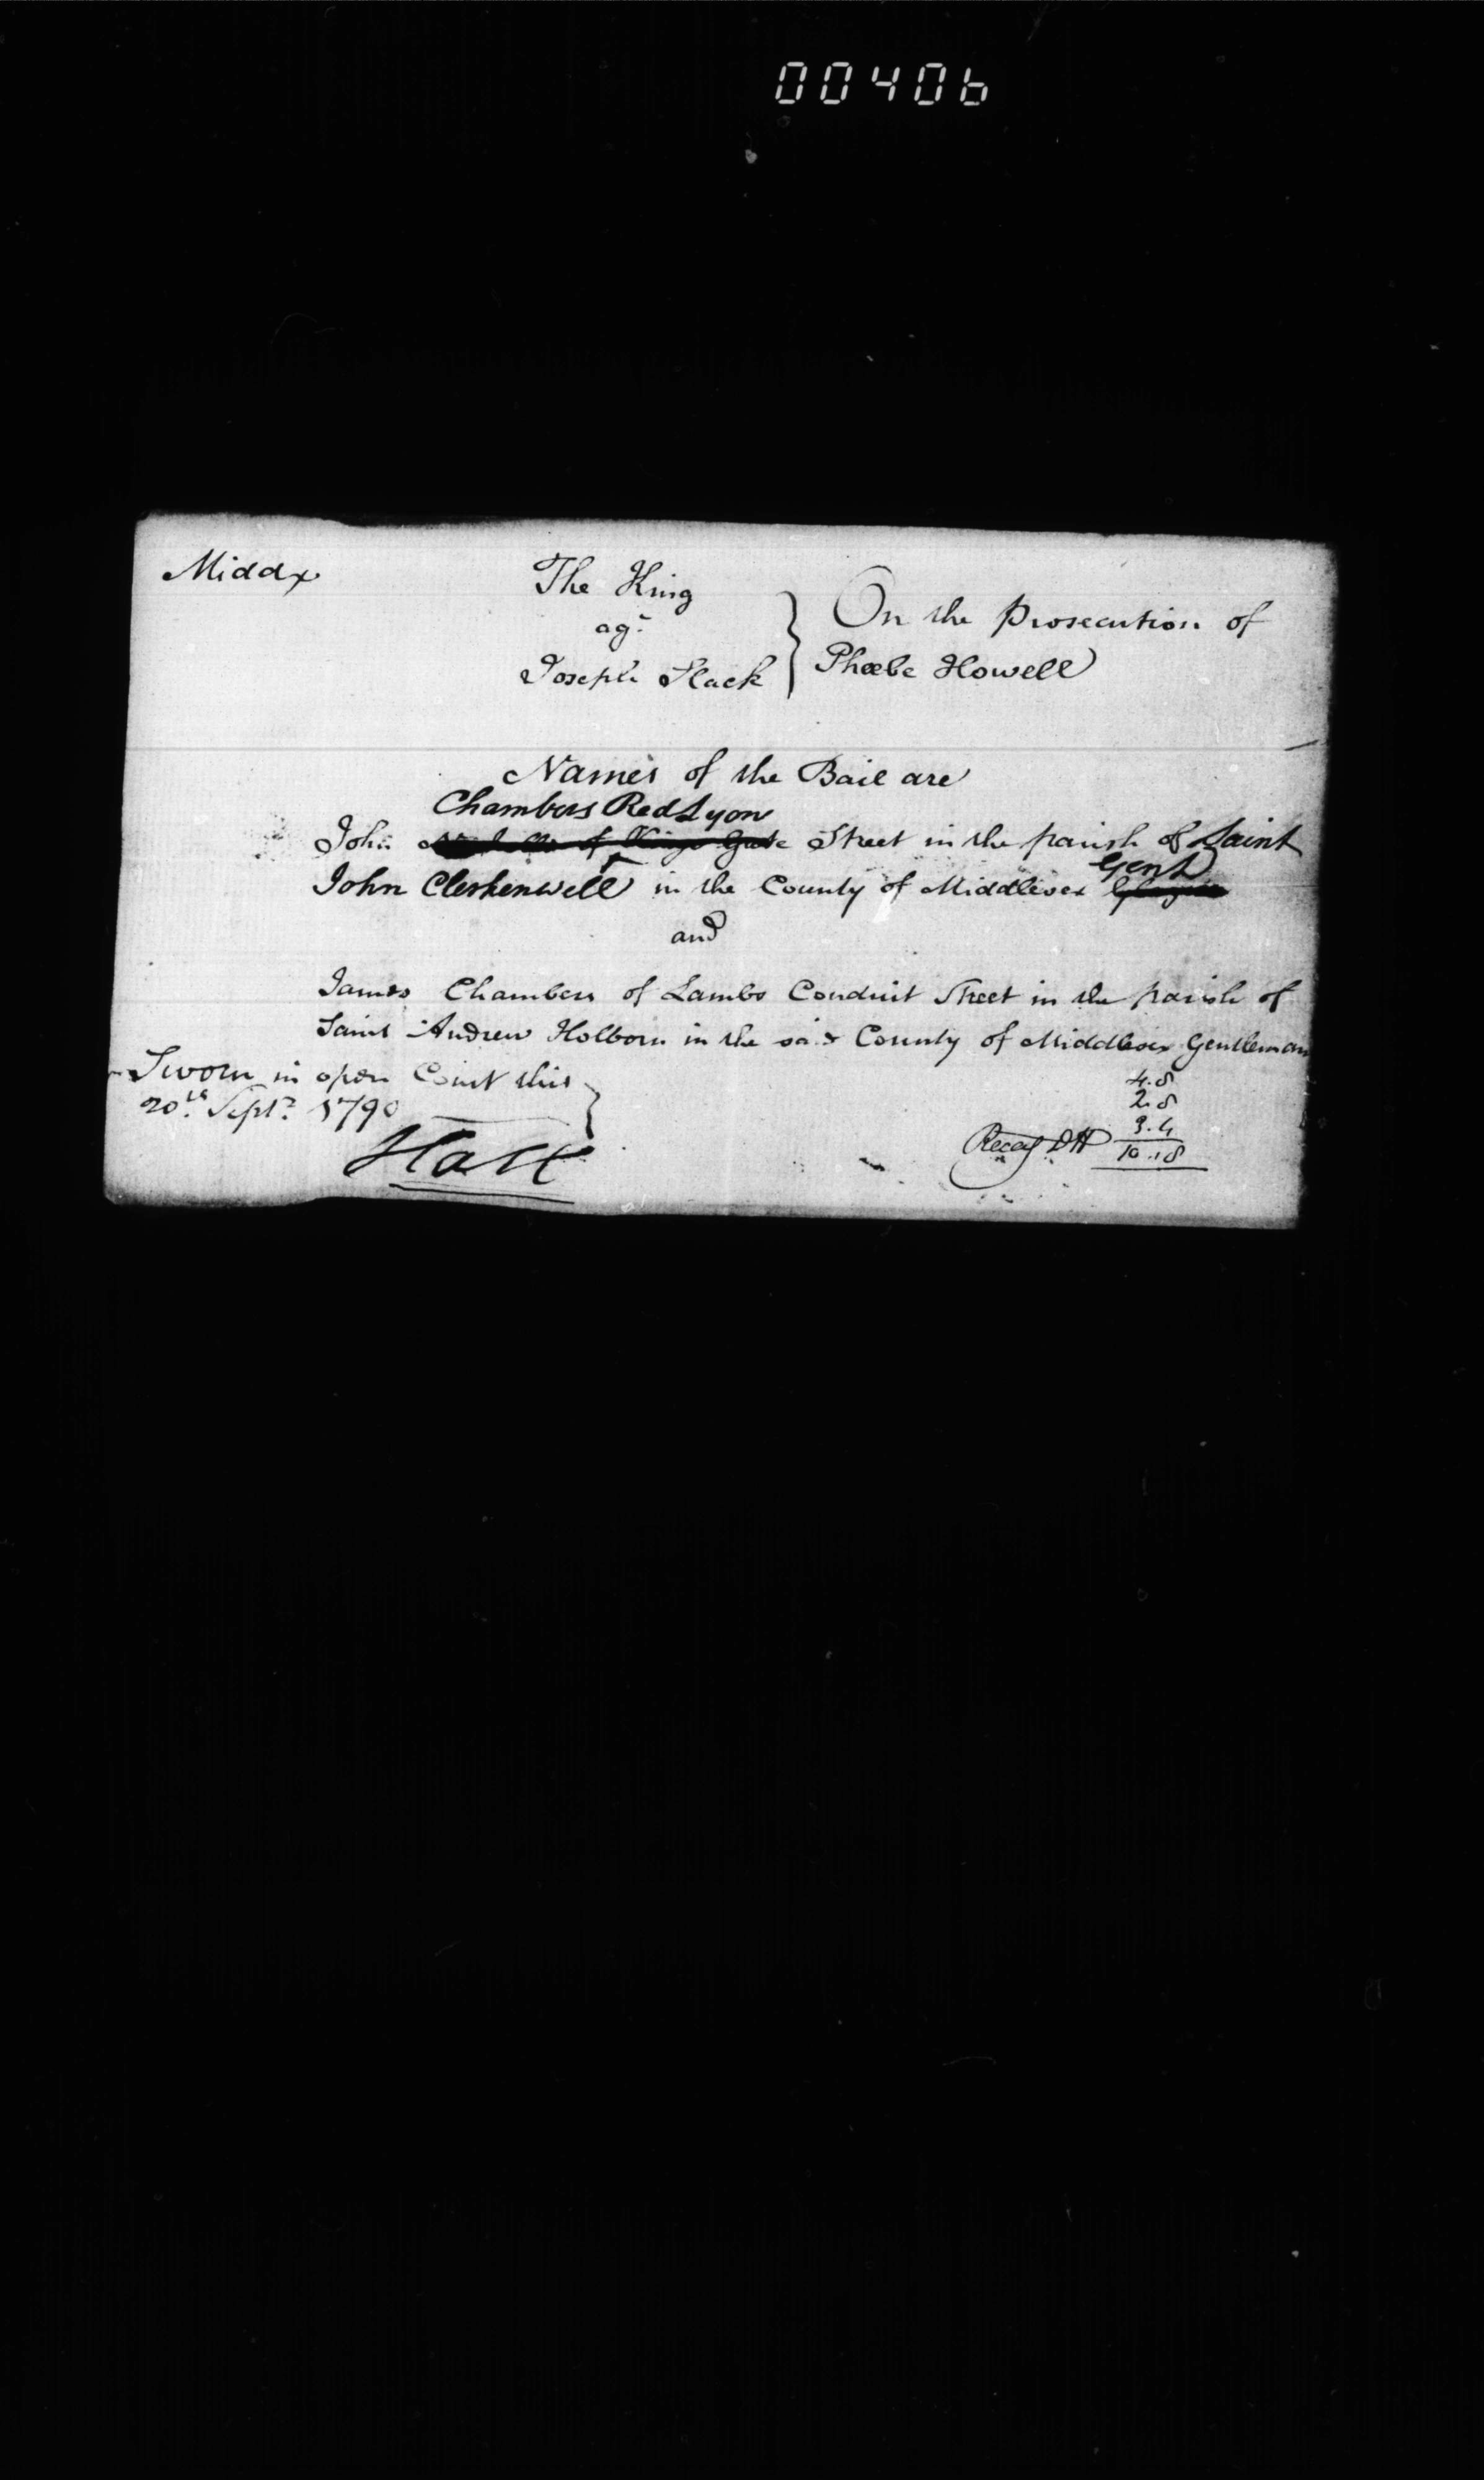 00406
Middx
The King
agt
Joseph Slack
On the Prosecution of
Phœbe Howell
Names of the Bail are
Chambers Red Lyon
John Street in the parish of Saint
Gent
John Clerkenwell in the County of Middlesex
and
James Chambers of Lambs Conduit Street in the parish of
Saint Andrew Holborn in the said County of Middlesex Gentleman
Sworn in open Court this
20th Septr 1790
4.8
2.8
3.4
10.8